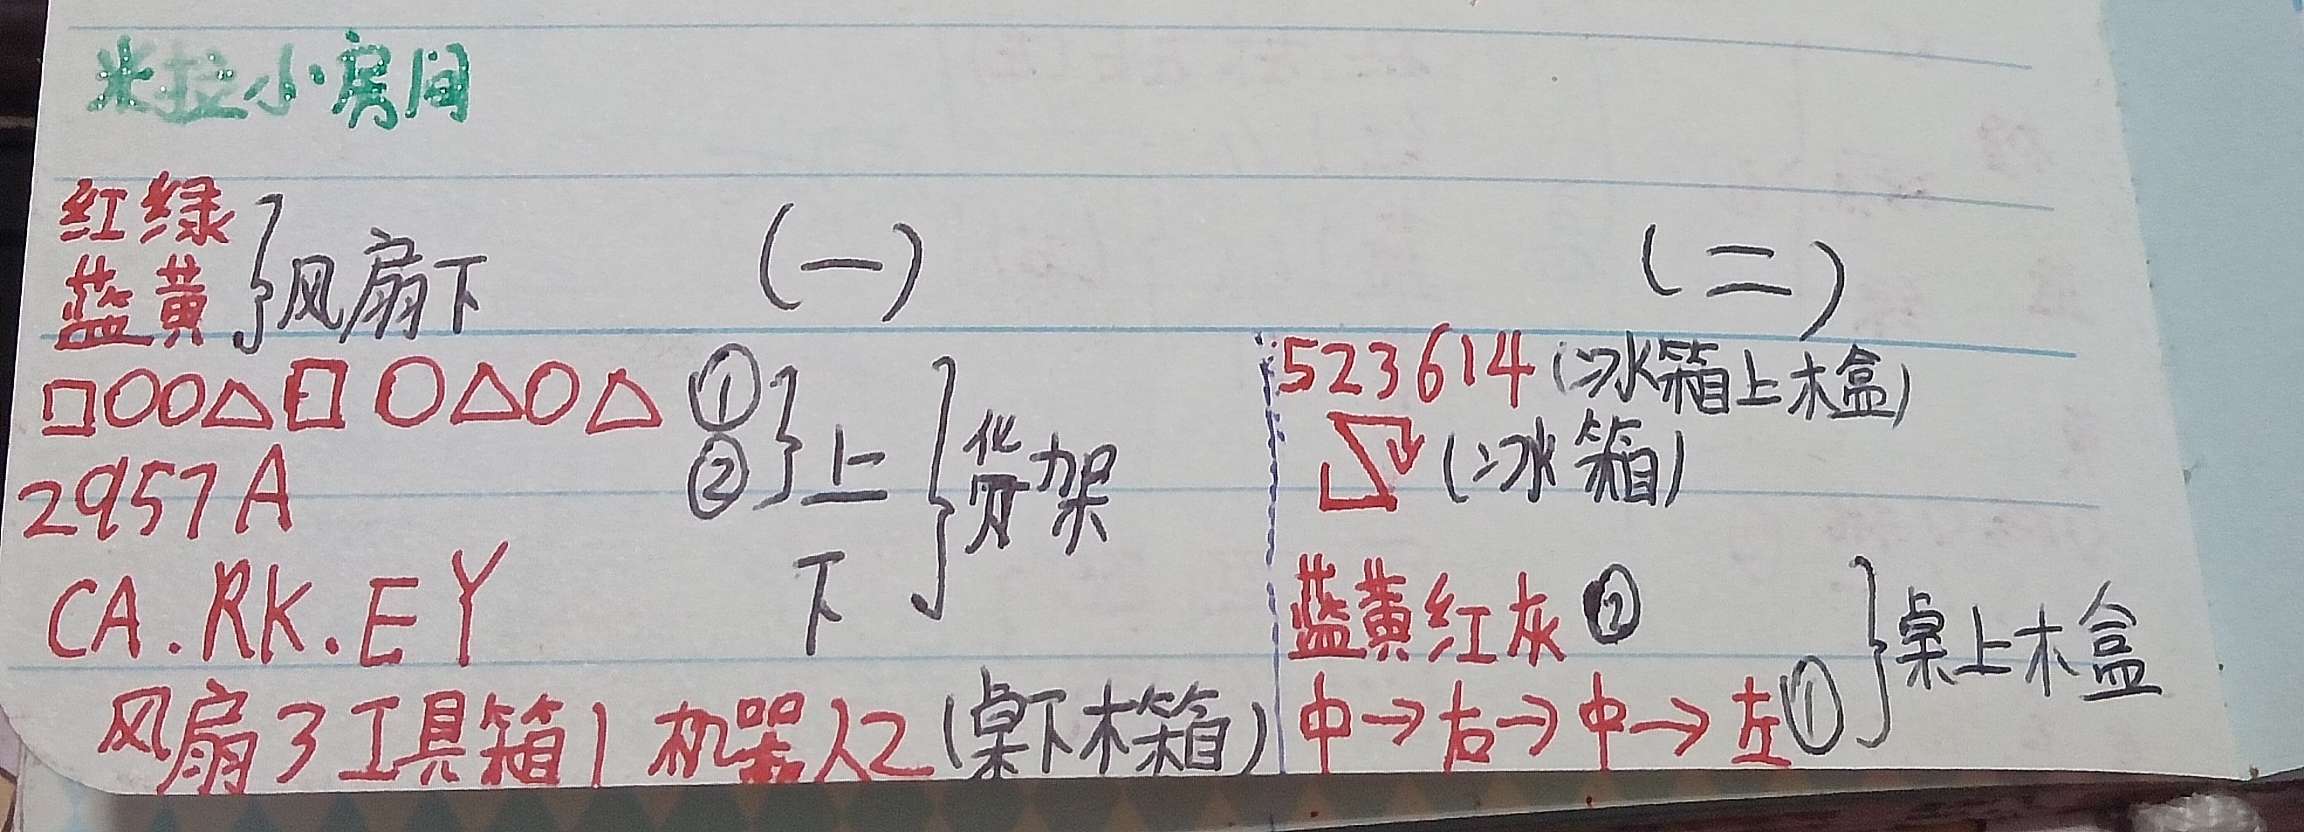 米拉小房间
(一)
红绿
蓝黄 } 风扇下
□○○△□ ○△○△ ①
2957A ② } 上
CA.RK.EY 下 } 货架
风扇3工具箱1 机器人2(桌下木箱)
(二)
523614(冰箱上木盒)
(冰箱)
蓝黄红灰②
中→右→中→左① } 桌上木盒